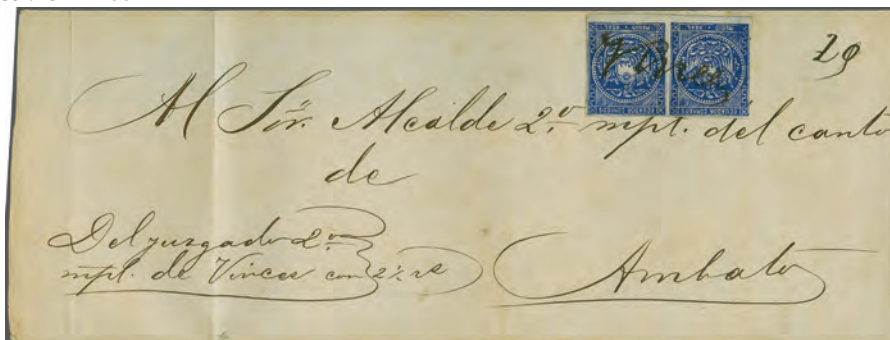 29
Al Sór. Alcalde 2.º mpl. del cantó
de
Del juzgado 2º
mpl. de Vinces con 2½ rs
Ambato